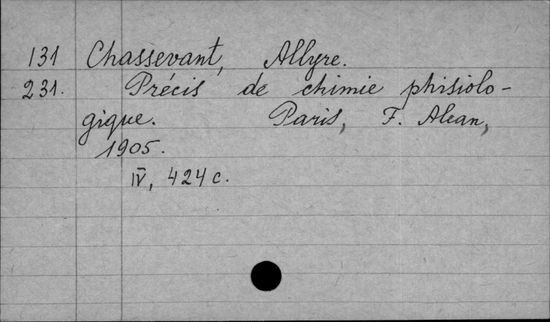 131 Chassevant, Allyre.
231. Précis de chimie phisiolo-
gique. Paris, F. Alcan,
1905.
IV, 424 c.